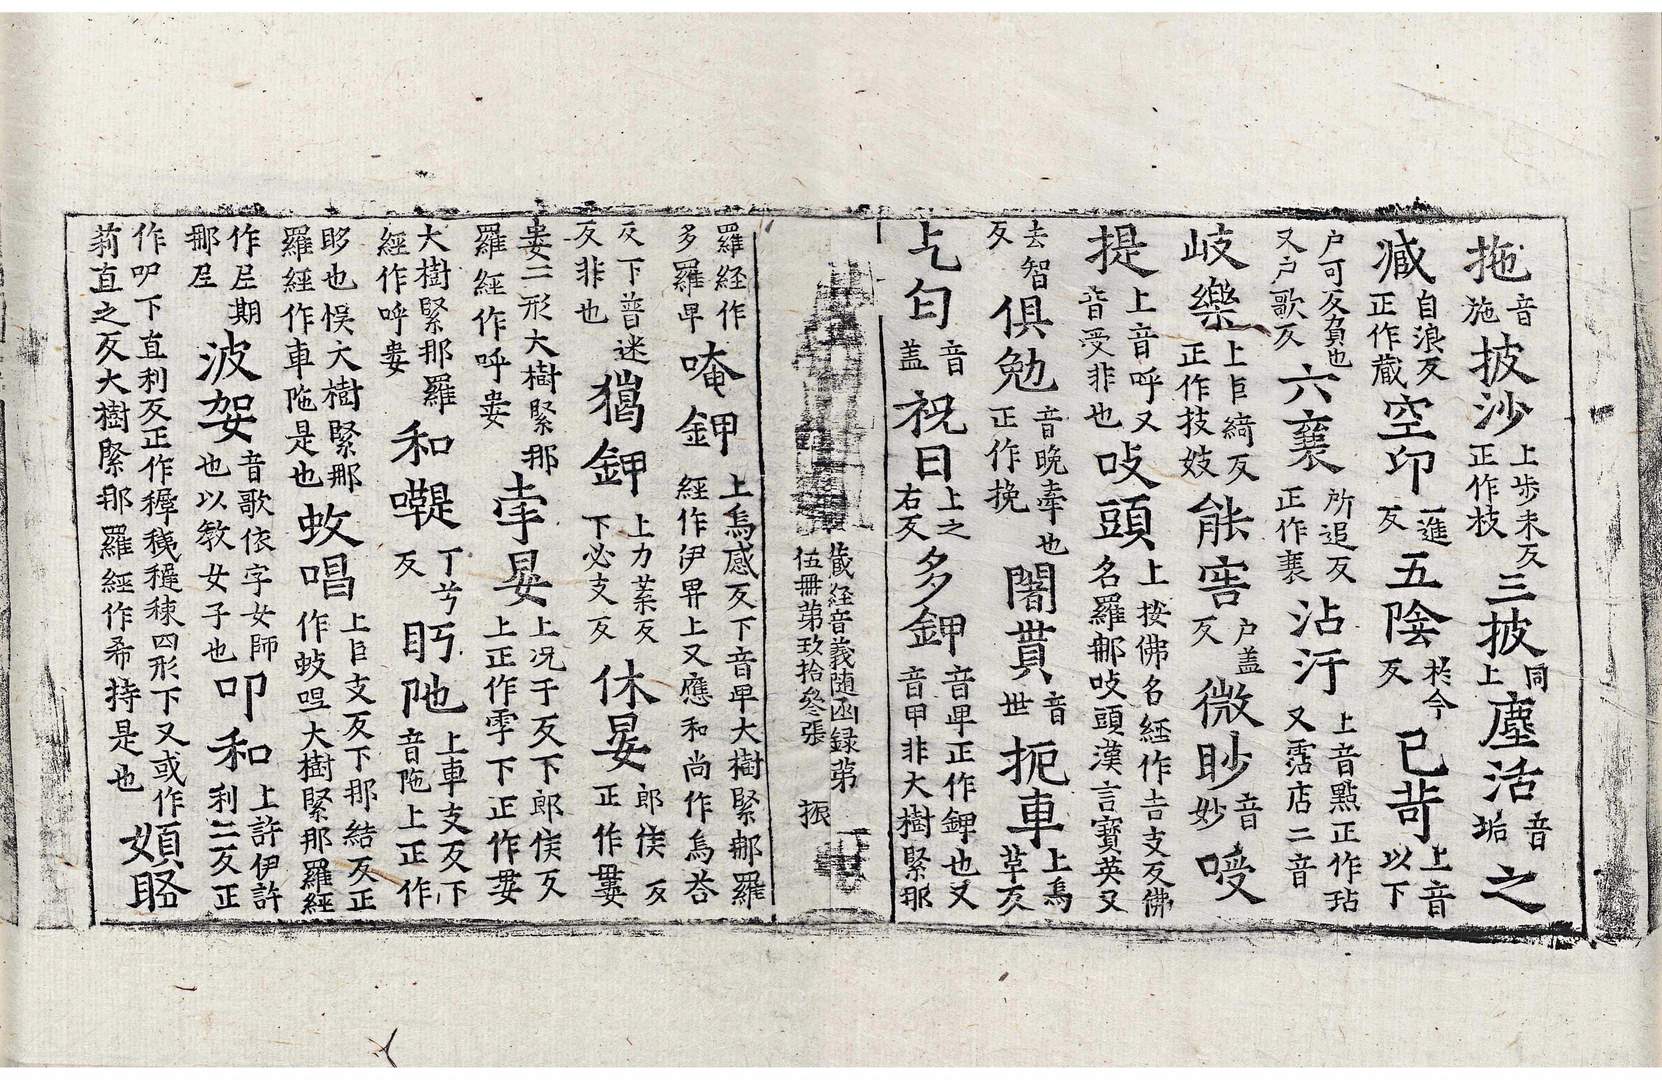 拖音施披沙上步末反正作枝三披同上塵活音垢之
減自浪反正作蔵空卬一進反五陰於今反已苛上音以下
户可反負也又户歌反六襄所追反正作衰沾汙上音點正作玷又霑店二音
岐樂上巨綺反正作技妓能害户盖反微眇音妙嗳
提上音呼又音受非也吱頭上按佛名經作吉支反佛名羅那吱頭漢言寶英又
去智反俱勉音晚牽也正作挽闇貰音世扼車上烏草反
乞匂音盖祝日上之右反多鉀音卑正作鉀也又音甲非大樹緊那
蔵经音義随函録第伍冊第玖拾叅張 振
羅經作多羅卑唵鉀上烏感反下音卑大樹緊那羅經作伊昇上又應和尚作烏荅
反下普迷反非也猲鉀上力葉反下必支反休晏郎侯反正作婁
婁二形大樹緊那羅經作呼婁雩晏上况于反下郎侯反上正作雩下正作婁
大樹緊那羅經作呼婁和嚏丁兮反眄阤上車支反下音陁上正作
眵也悮大樹緊那羅經作車陁是也蚑唱上巨支反下那結反正作蚑哩大樹緊那羅經
作𡰱期那𡰱波妿音歌依字女師也以教女子也叩和上許伊許利二反正
作呬下直利反正作稺四形下又或作莉直之反大樹緊那羅經作希持是也